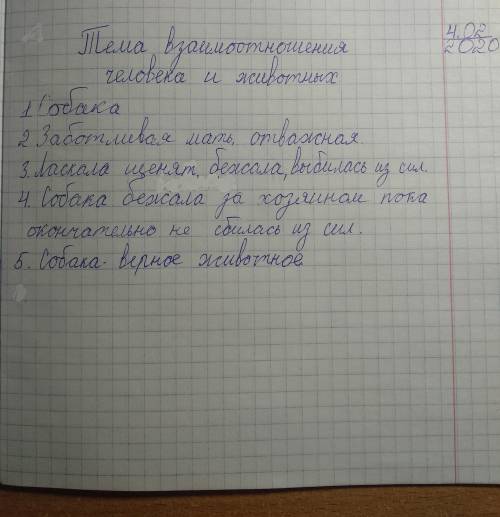 Тема взаимоотношения
человека и животных
4.02
2020
1 Собака
2 Заботливая мать, отважная
3. Ласкала щенят, бежала, выбилась из сил.
4. Собака бежала за хозяином пока
окончательно не сбилась из сил.
5. Собака- верное животное.